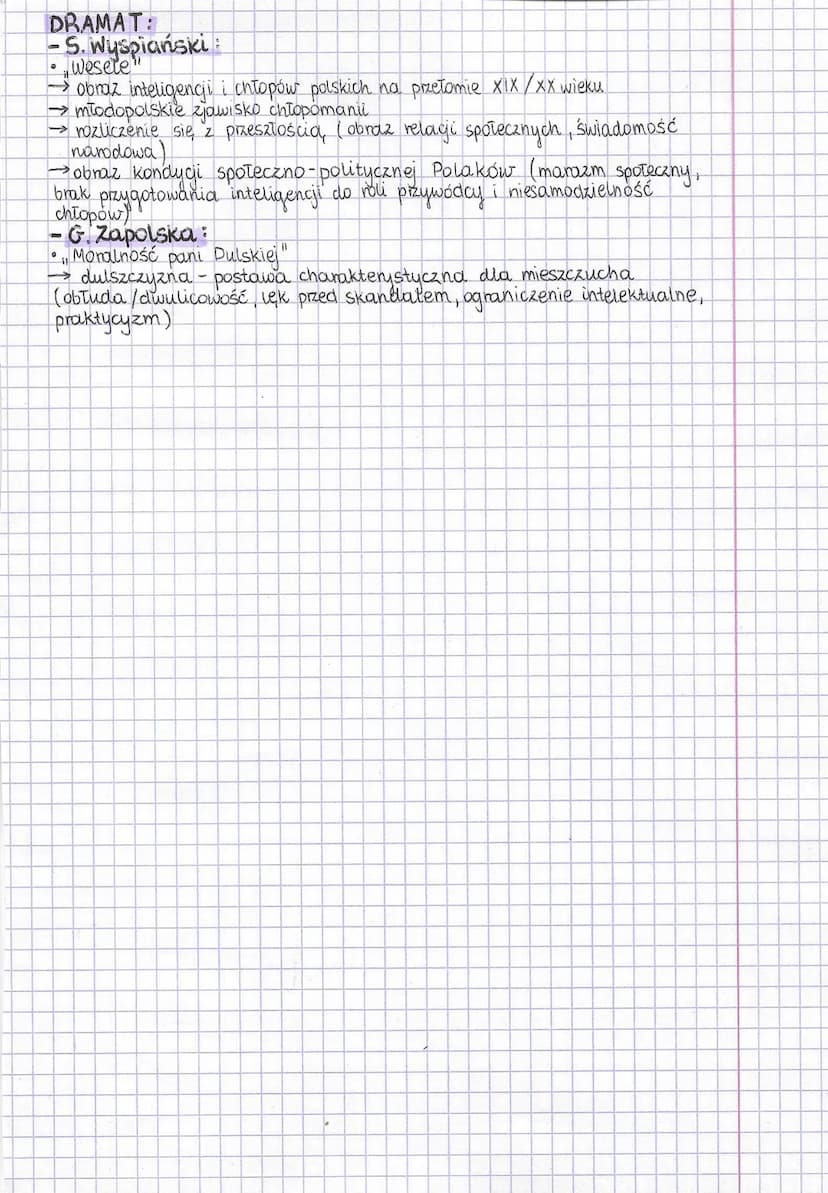 DRAMAT:
- S. Wyspiański:
• „Wesele"
→ obraz inteligencji i chłopów polskich na przełomie XIX/XX wieku
→ młodopolskie zjawisko chłopomanii
→ rozliczenie się z przeszłością (obraz relacji społecznych, świadomość
narodowa)
→ obraz kondycji społeczno-politycznej Polaków (marazm społeczny,
brak przygotowania inteligencji do roli przywódcy i niesamodzielność
chłopów)
- G. Zapolska:
• „Moralność pani Dulskiej"
→ dulszczyzna - postawa charakterystyczna dla mieszczucha
(obłuda/dwulicowość, lęk przed skandalem, ograniczenie intelektualne,
praktycyzm)